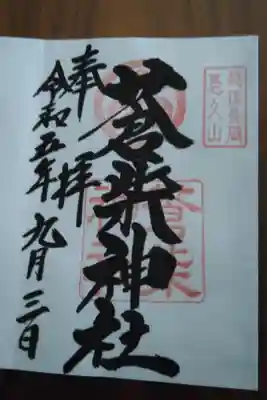 越後長岡
悠久山
奉拝
蒼柴神社
令和五年九月三日